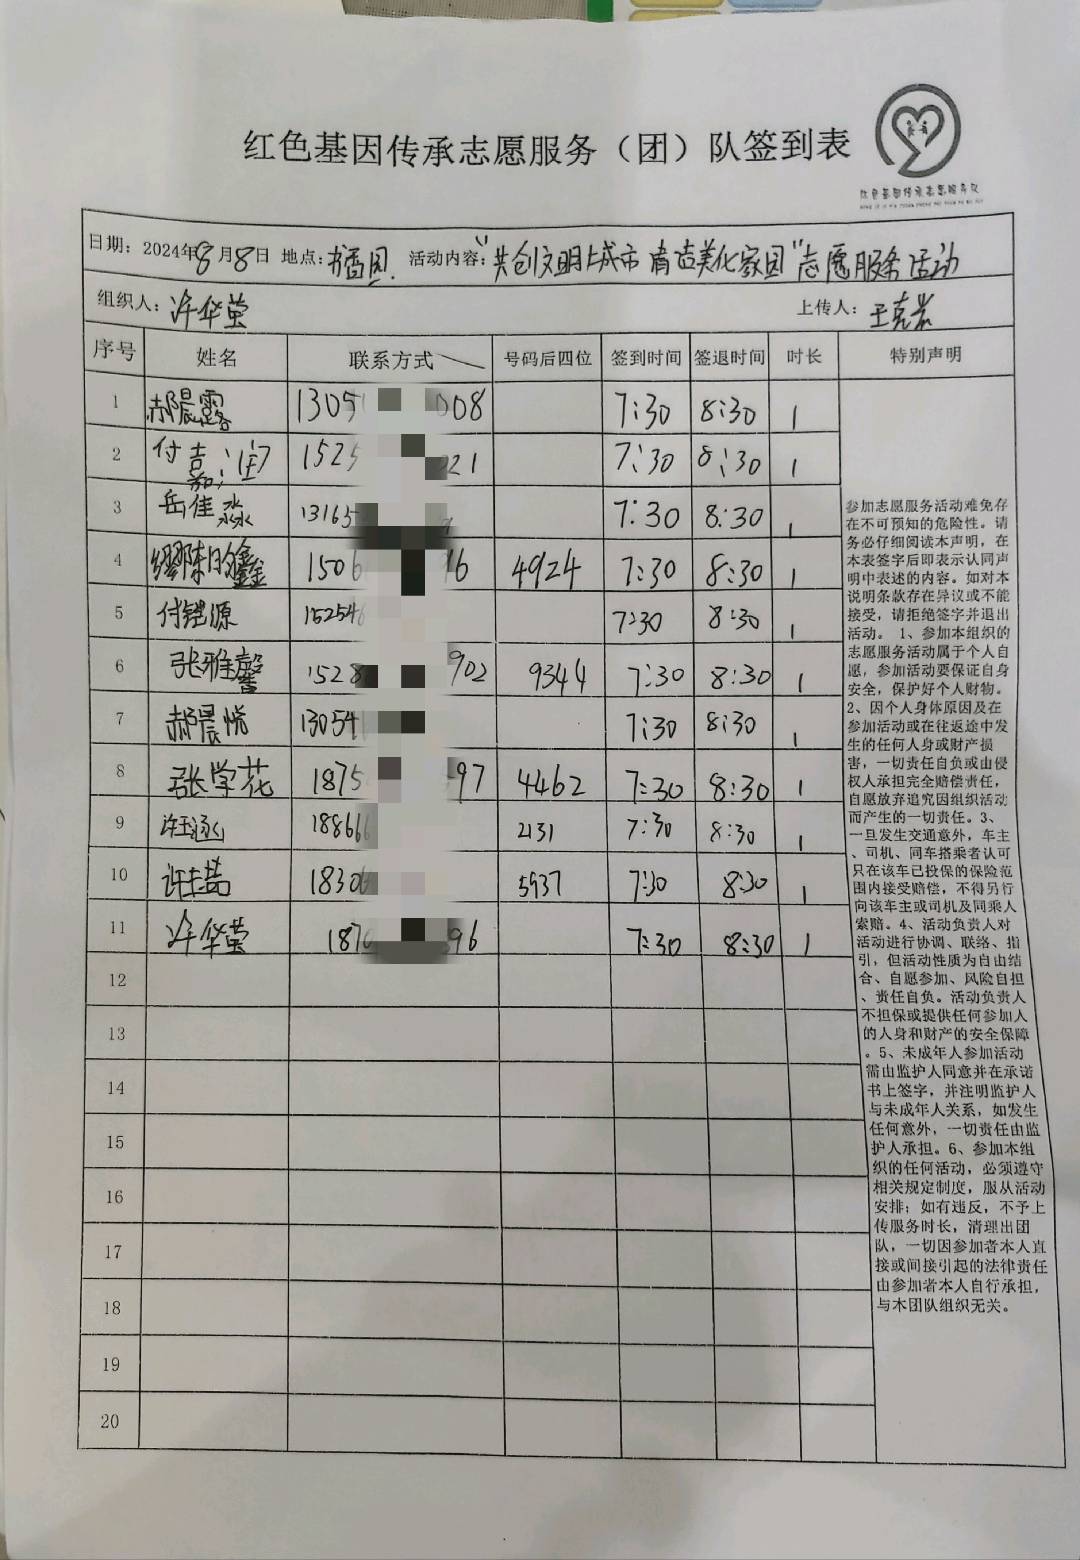 红色基因传承志愿服务（团）队签到表
红色基因传承志愿服务队
日期：2024年8月8日 地点：书香园. 活动内容：“共创文明城市 清洁美化家园”志愿服务活动
组织人：许华莹 上传人：王克岩
序号 姓名 联系方式 号码后四位 签到时间 签退时间 时长 特别声明
1 郝晨露 1305 008 7:30 8:30 1
2 付嘉 152 21 7:30 8:30 1
3 岳佳淼 13165 7:30 8:30 1
4 缪陈昀鑫 1506 16 4924 7:30 8:30 1
5 付锴源 152546 7:30 8:30 1
6 张雅馨 1528 902 9344 7:30 8:30 1
7 郝晨悦 130541 7:30 8:30 1
8 张学花 1875 597 4462 7:30 8:30 1
9 许 涵 188666 2131 7:30 8:30 1
10 许 18306 5937 7:30 8:30 1
11 许华莹 187 396 7:30 8:30 1
12
13
14
15
16
17
18
19
20
参加志愿服务活动难免存
在不可预知的危险性。请
务必仔细阅读本声明，在
本表签字后即表示认同声
明中表述的内容。如对本
说明条款存在异议或不能
接受，请拒绝签字并退出
活动。 1、参加本组织的
志愿服务活动属于个人自
愿，参加活动要保证自身
安全，保护好个人财物。
2、因个人身体原因及在
参加活动或在往返途中发
生的任何人身或财产损
害，一切责任自负或由侵
权人承担完全赔偿责任，
自愿放弃追究因组织活动
而产生的一切责任。3、
一旦发生交通意外，车主
、司机、同车搭乘者认可
只在该车已投保的保险范
围内接受赔偿，不得另行
向该车主或司机及同乘人
索赔。4、活动负责人对
活动进行协调、联络、指
引，但活动性质为自由结
合、自愿参加、风险自担
、责任自负。活动负责人
不担保或提供任何参加人
的人身和财产的安全保障
。5、未成年人参加活动
需由监护人同意并在承诺
书上签字，并注明监护人
与未成年人关系，如发生
任何意外，一切责任由监
护人承担。6、参加本组
织的任何活动，必须遵守
相关规定制度，服从活动
安排；如有违反，不予上
传服务时长，清理出团
队，一切因参加者本人直
接或间接引起的法律责任
由参加者本人自行承担，
与本团队组织无关。